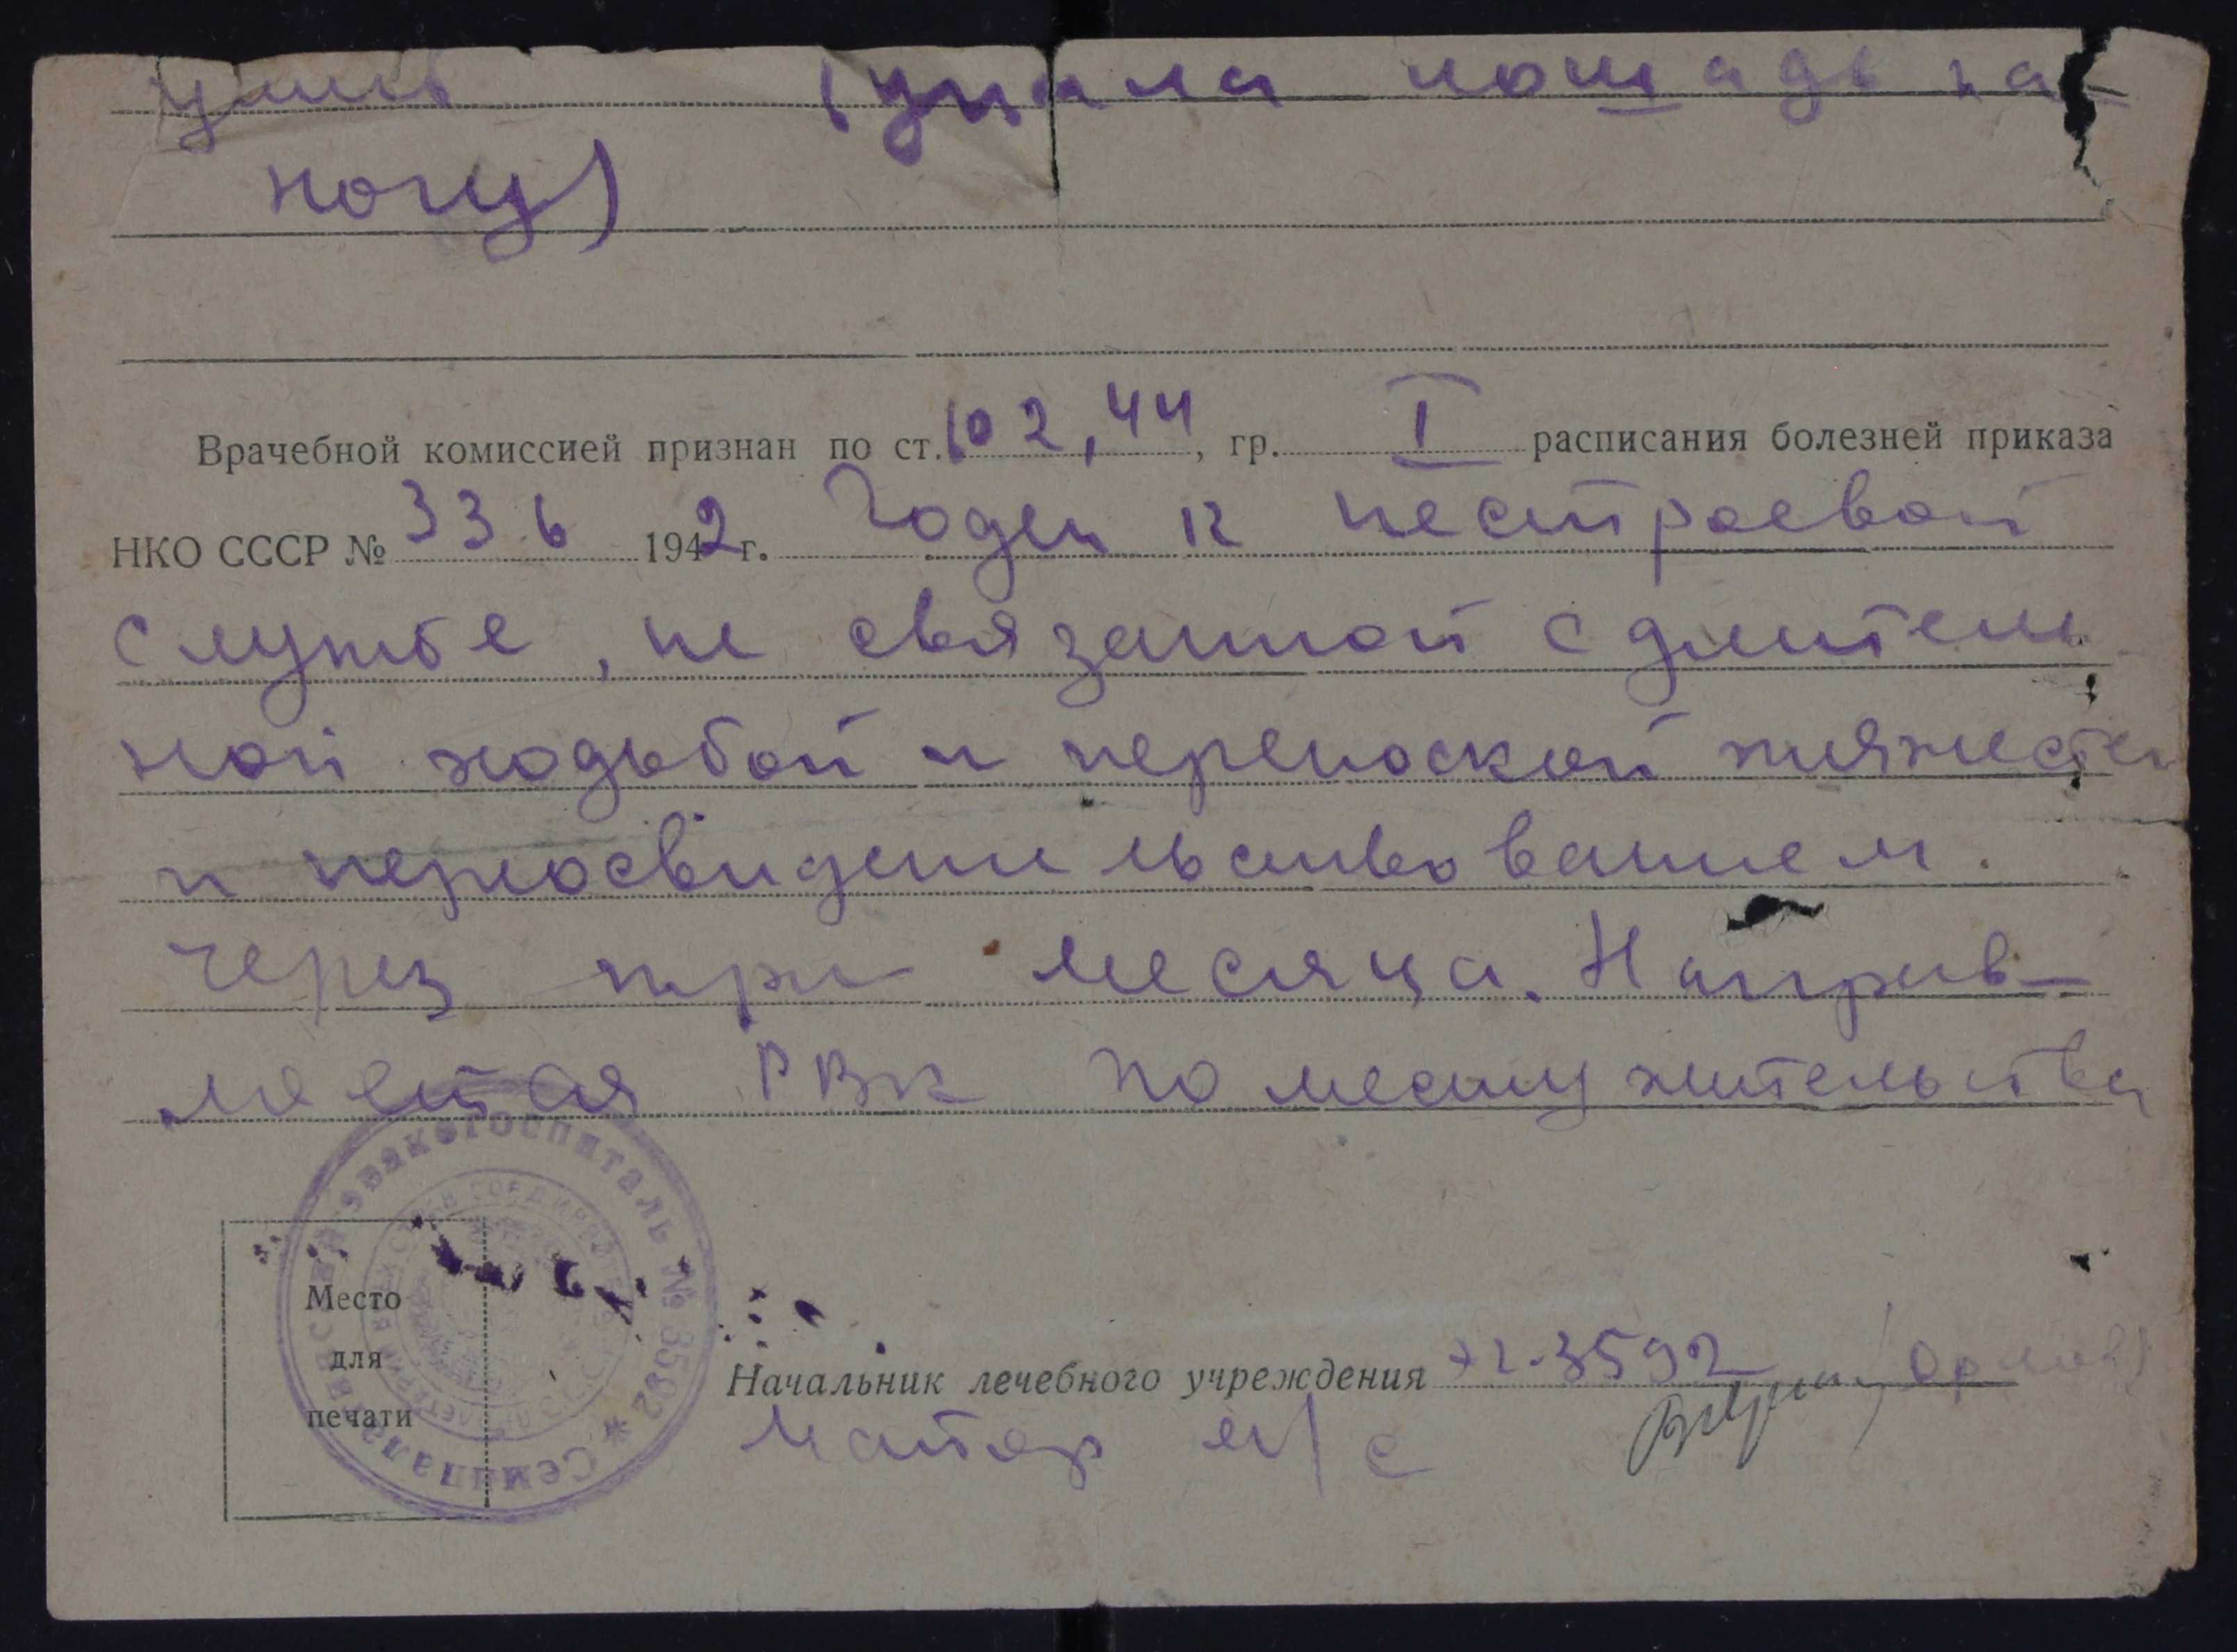 ушиб (упала лошадь на
ногу)
Врачебной комиссией признан по ст. 102, 44, гр. I расписания болезней приказа
НКО СССР № 336 1942 г. Годен к нестроевой
службе, не связанной с длитель
ной ходьбой и переноской тяжестей
и переосвидетельствованием.
через три месяца. Направ-
ляется РВК по месту жительства
Эвакогоспиталь № 3592 * Семипалатинск
Место
для
печати
Начальник лечебного учреждения эг-3592 /Орлов/
майор м/с